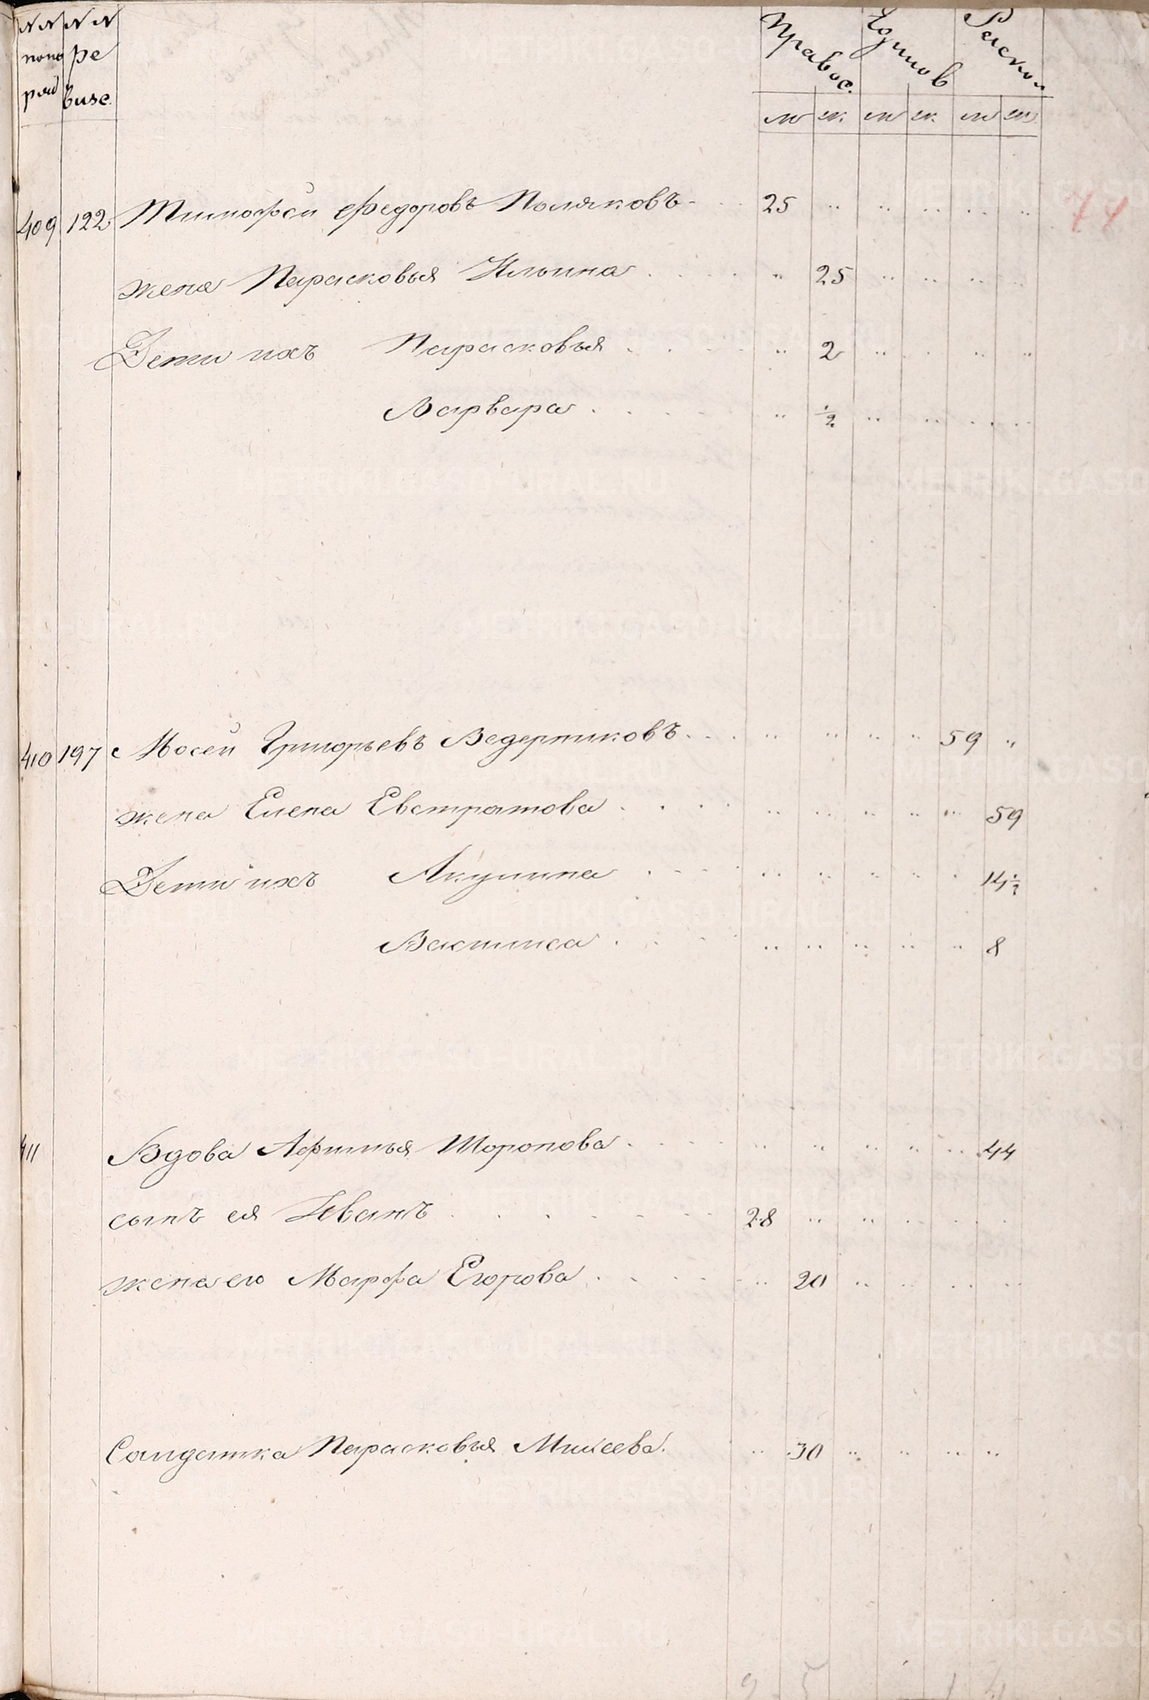 NN NN Правос. Единов Раскол
поно ре
ряд визс.
м ж. м ж. м ж
409 122 Тимофей Федоровъ Поляковъ 25
жена Парасковья Ильина 25
Дети ихъ Парасковья 2
Варвара ½
410 197 Мосей Григорьевъ Ведерниковъ 59
жена Елена Евстратова 59
Дети ихъ Акулина 14½
Васшиса 8
411 Вдова Афимья Шоропова 44
сынъ ея Иванъ 28
жена его Марфа Егорова 20
Салдатка Парасковья Мисеева. 30
METRIKI.GASO-URAL.RU